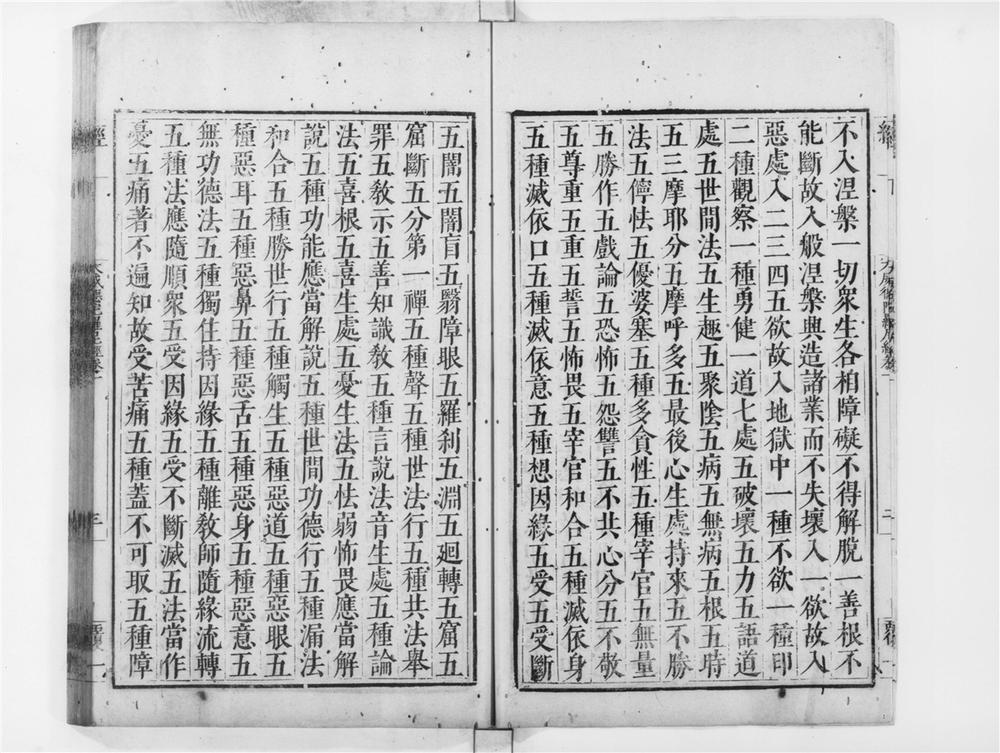 不入涅槃一切衆生各相障礙不得解脫一善根不
能斷故入般涅槃興造諸業而不失壞入一欲故入
惡處入二三四五欲故入地獄中一種不欲一種印
二種觀察一種勇健一道七處五破壞五力五語道
處五世間法五生趣五聚陰五病五無病五根五時
五三摩耶分五摩呼多五最後心生處持來五不勝
法五儜怯五優婆塞五種多貪性五種宰官五無量
五勝作五戲論五恐怖五怨讐五不共心分五不敬
五尊重五重五誓五怖畏五宰官和合五種滅依身
五種滅依口五種滅依意五種想因緣五受五受斷
五闇五闇盲五翳障眼五羅刹五淵五廻轉五窟五
窟斷五分第一禪五種聲五種世法行五種共法舉
罪五敎示五善知識敎五種言說法音生處五種論
法五喜根五喜生處五憂生法五怯弱怖畏應當解
說五種功能應當解說五種世間功德行五種漏法
和合五種勝世行五種觸生五種惡道五種惡眼五
種惡耳五種惡鼻五種惡舌五種惡身五種惡意五
無功德法五種獨住持因緣五種離敎師隨緣流轉
五種法應隨順衆五受因緣五受不斷滅五法當作
憂五痛著不遍知故受苦痛五種蓋不可取五種障
經
三